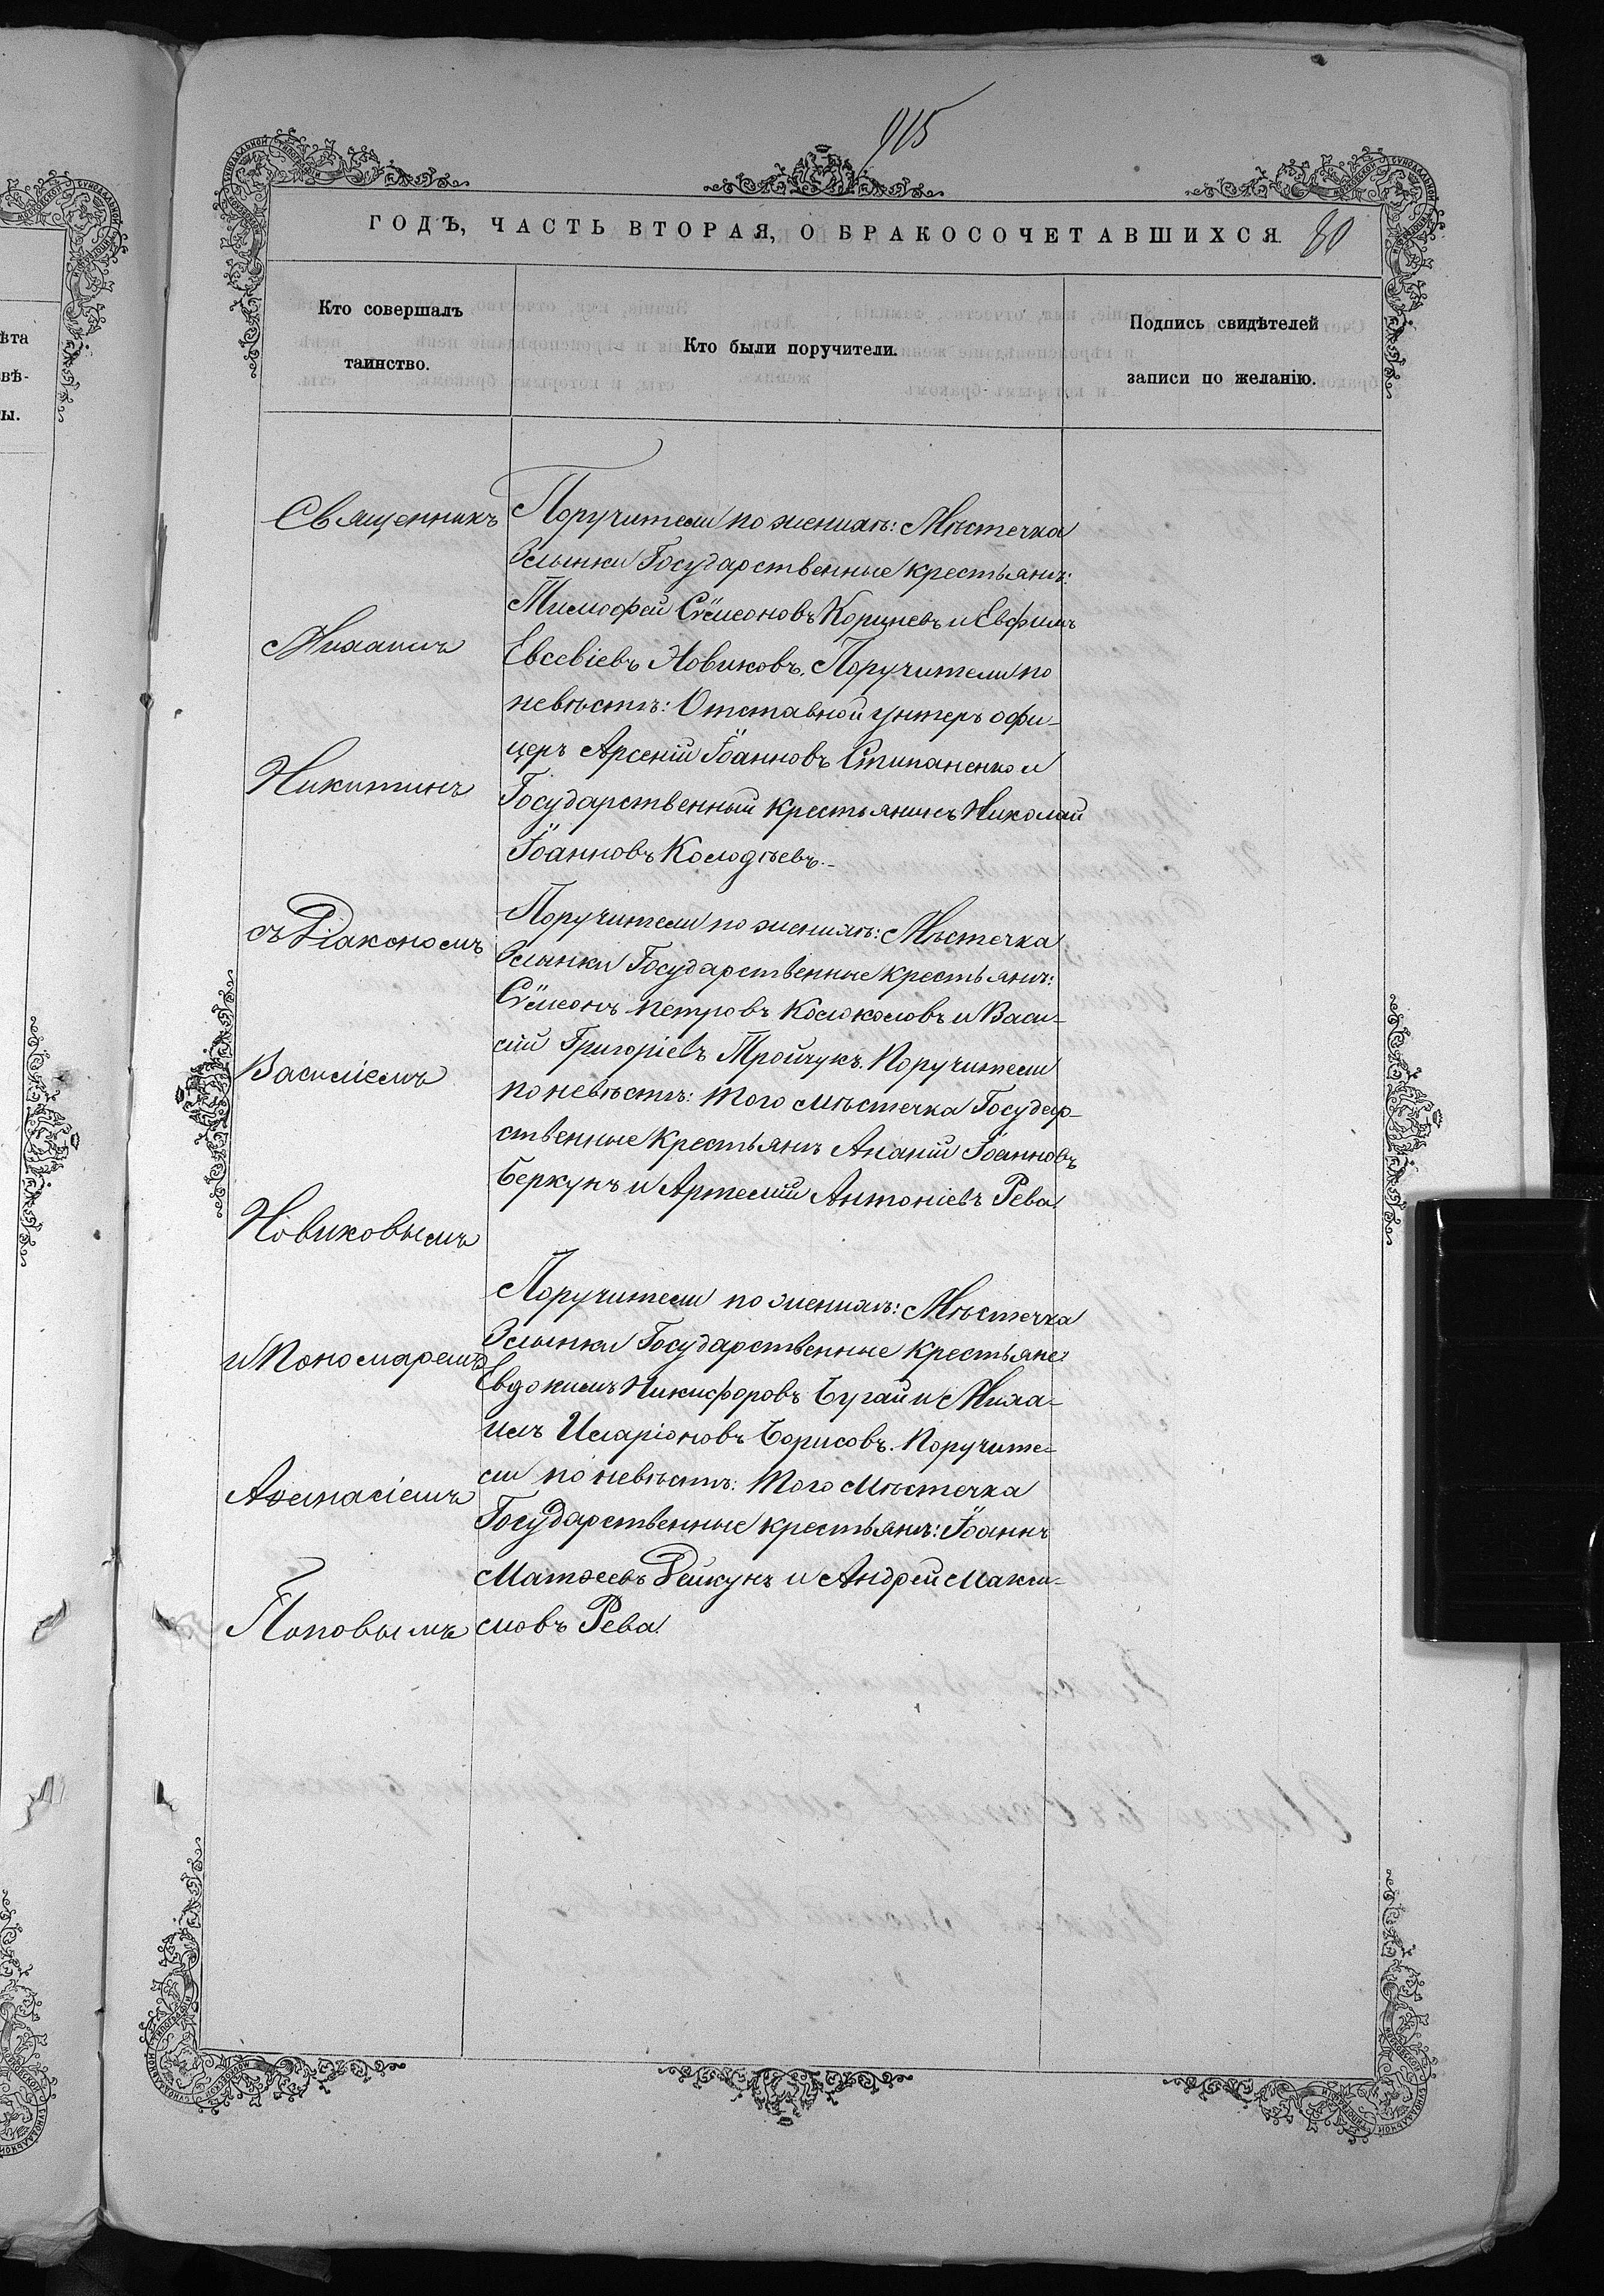 915
ГОДЪ, ЧАСТЬ ВТОРАЯ, О БРАКОСОЧЕТАВШИХСЯ. 80
Кто совершалъ
таинство.
Кто были поручители.
Подпись свидѣтелей
записи по желанію.
Священникъ
Михаилъ
Никитинъ
съ Діакономъ
Василіемъ
Новиковымъ
и Пономаремъ
Аѳанасіемъ
Поповымъ
Поручители по женихѣ: Мѣстечка
Злынки Государственные крестьянѣ:
Тимофей Сѵмеоновъ Корцневъ и Евфимъ
Евсевіевъ Новиковъ. Поручители по
невѣстѣ: Отставной унтеръ офи-
церъ Арсеній Іоанновъ Стипаненко и
Государственный крестьянинъ Николай
Іоанновъ Колодѣевъ.-
Поручители по женихѣ: Мѣстечка
Злынки Государственные крестьянѣ:
Сѵмеонъ Петровъ Колоколовъ и Васи-
лій Григоріевъ Тройчукъ. Поручители
по невѣстѣ: того мѣстечка Государ-
ственные крестьянѣ Ананій Іоанновъ
Беркунъ и Артемій Антоніевъ Рева.
Поручители по женихѣ: Мѣстечка
Злынки Государственные крестьяне
Евдокимъ Никифоровъ Бугай и Миха-
илъ Иларіоновъ Борисовъ. Поручите-
ли по невѣстѣ: того мѣстечка
Государственные крестьянѣ: Іоаннъ
Матѳеевъ Дейкунъ и Андрей Макси-
мовъ Рева.
ѣта
вѣ-
ты.